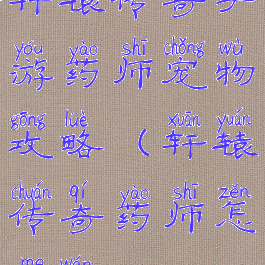 yóu yào shī chǒng wù
游药师宠物
gōng luè xuān yuán
攻略（轩辕
chuán qí yào shī zěn
传奇药师怎
me wán